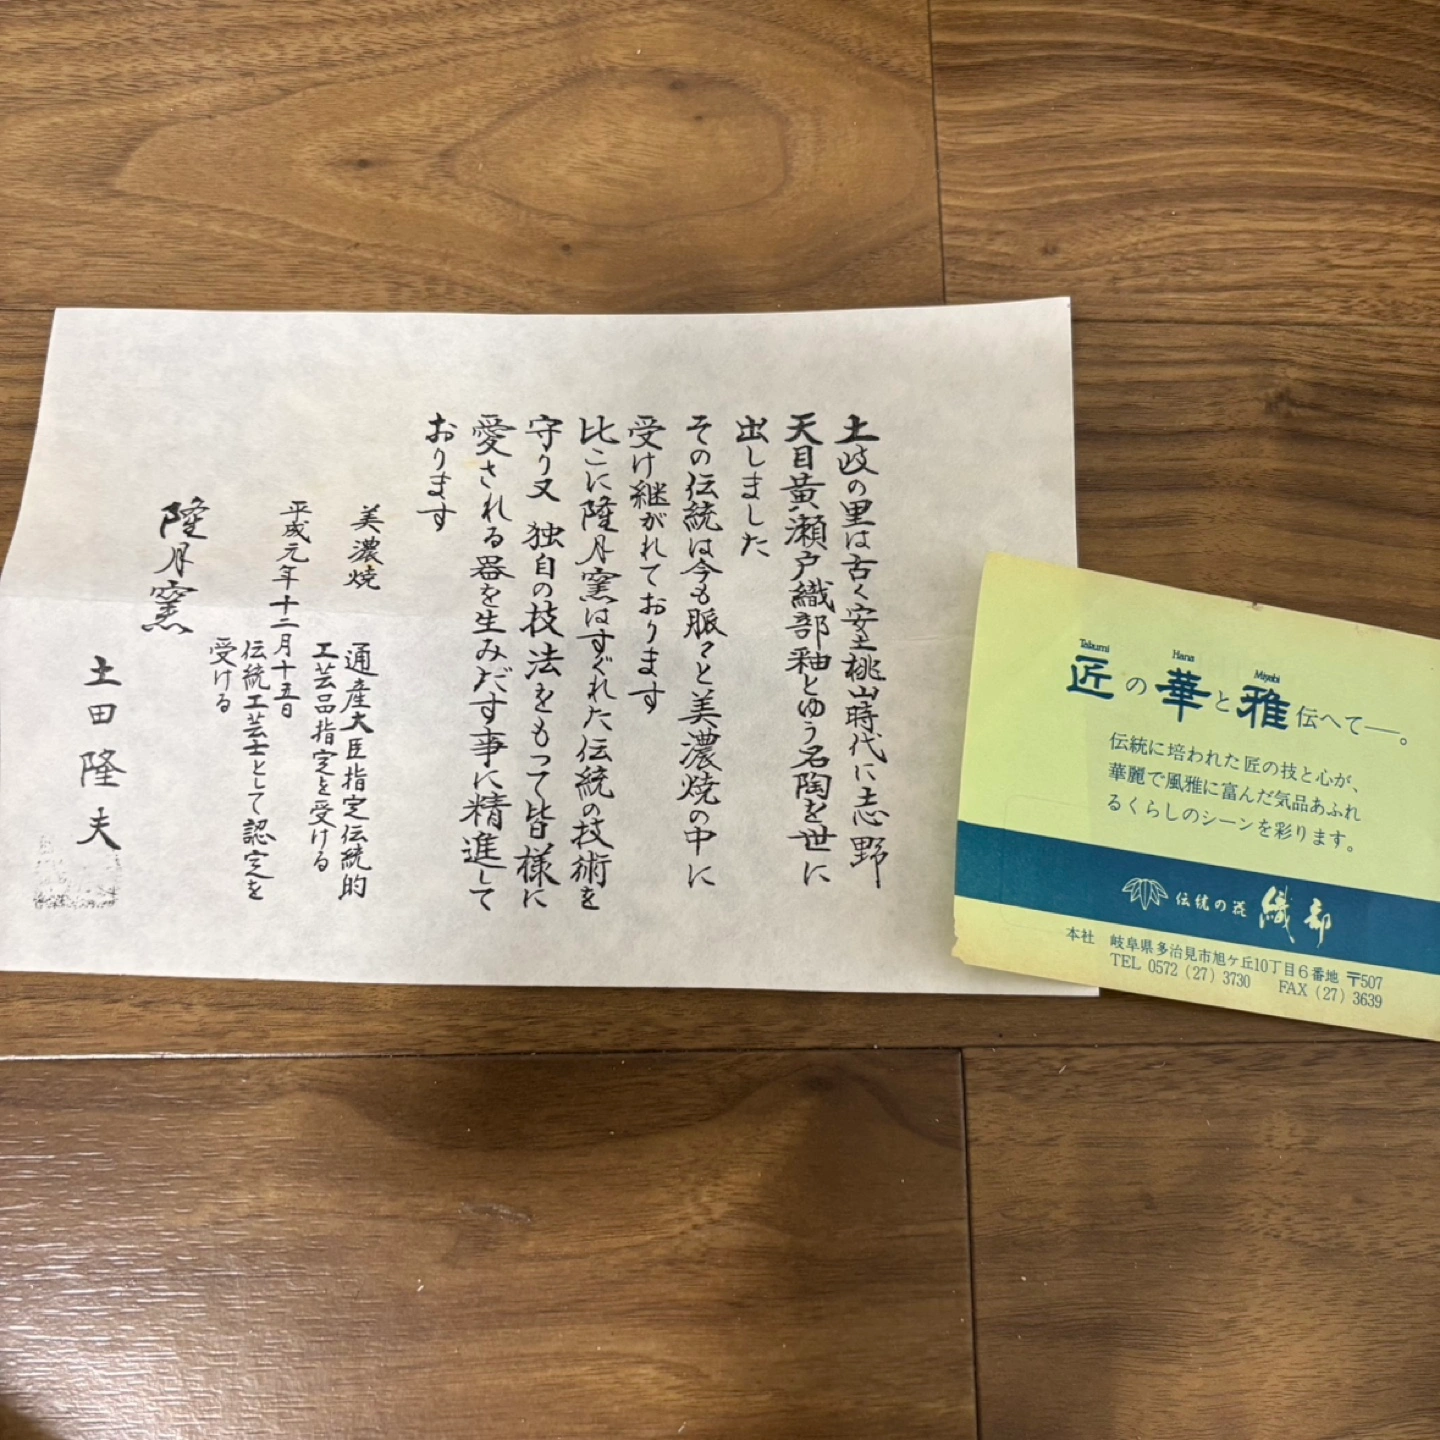 土岐の里は古く安土桃山時代に志野
天目黄瀬戸織部釉とゆう名陶を世に
出しました
その伝統は今も脈々と美濃焼の中に
受け継がれております
比こに隆月窯はすぐれた伝統の技術を
守り又 独自の技法をもって皆様に
愛される器を生みだす事に精進して
おります
美濃焼 通産大臣指定伝統的
工芸品指定を受ける
平成元年十二月十五日
伝統工芸士として認定を
受ける
隆月窯
土田隆夫
Takumi Hana Miyabi
匠の華と雅伝へて──。
伝統に培われた匠の技と心が、
華麗で風雅に富んだ気品あふれ
るくらしのシーンを彩ります。
伝統の花 織部
本社 岐阜県多治見市旭ケ丘10丁目6番地 〒507
TEL 0572 (27) 3730 FAX (27) 3639